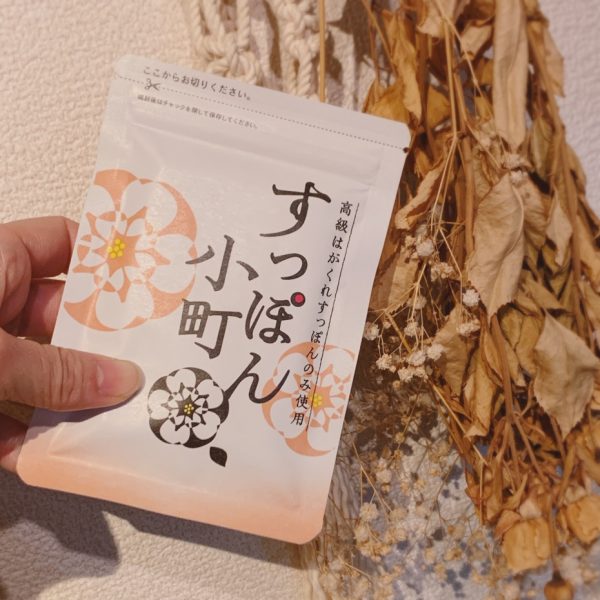 ここからお切りください。
開封後はチャックを閉じて保存してください。
高級はがくれすっぽんのみ使用
すっぽん
小町